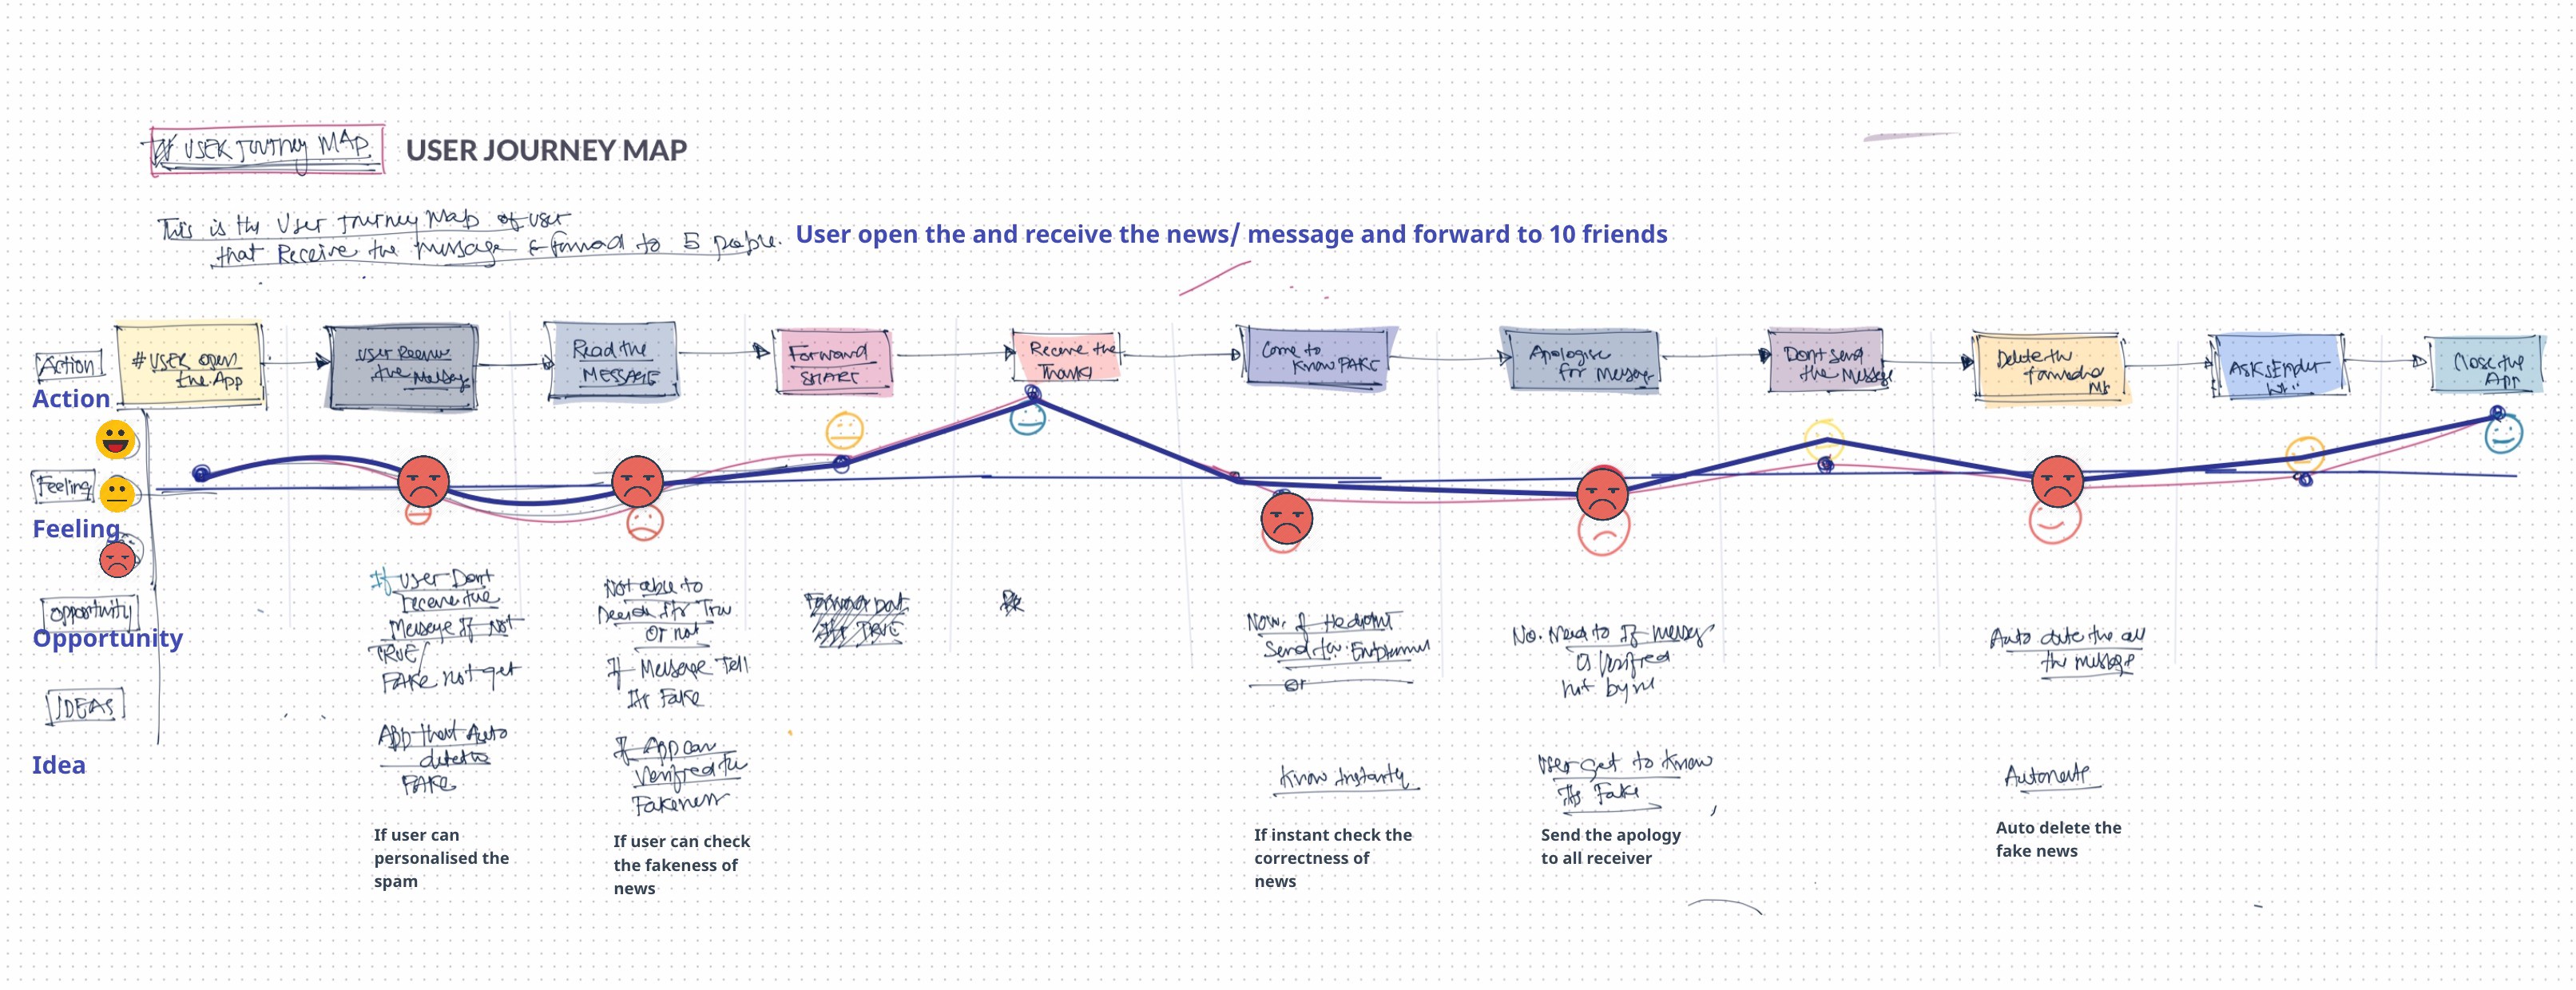 # USER JOURNEY MAP
USER JOURNEY MAP
This is the User Journey Map of user
that Receive the message & forward to 5 people.
User open the and receive the news/ message and forward to 10 friends
Action
Action
# USER open
the App
User Receive
the Message
Read the
MESSAGE
Forward
SHARE
Receive the
Thanks
Come to
Know FAKE
Apologise
for Message
Dont send
the Message
Delete the
Ask Sender
Close the
App
Feeling
Feeling
Opportunity
Opportunity
If User Dont
receive the
Message If Not
TRUE/
FAKE not get
Not able to
Decide Its True
Or not
If Message Tell
Its Fake
Its TRUE
Now, If He dont
Send for
or
No. Need to If message
is Verified
not by me
Auto delete the all
the message
IDEAS
Idea
App that Auto
detects
FAKE
If App can
Verified the
Fakeness
Know Instantly
User get to Know
Its Fake
Automate
If user can
personalised the
spam
If user can check
the fakeness of
news
If instant check the
correctness of
news
Send the apology
to all receiver
Auto delete the
fake news